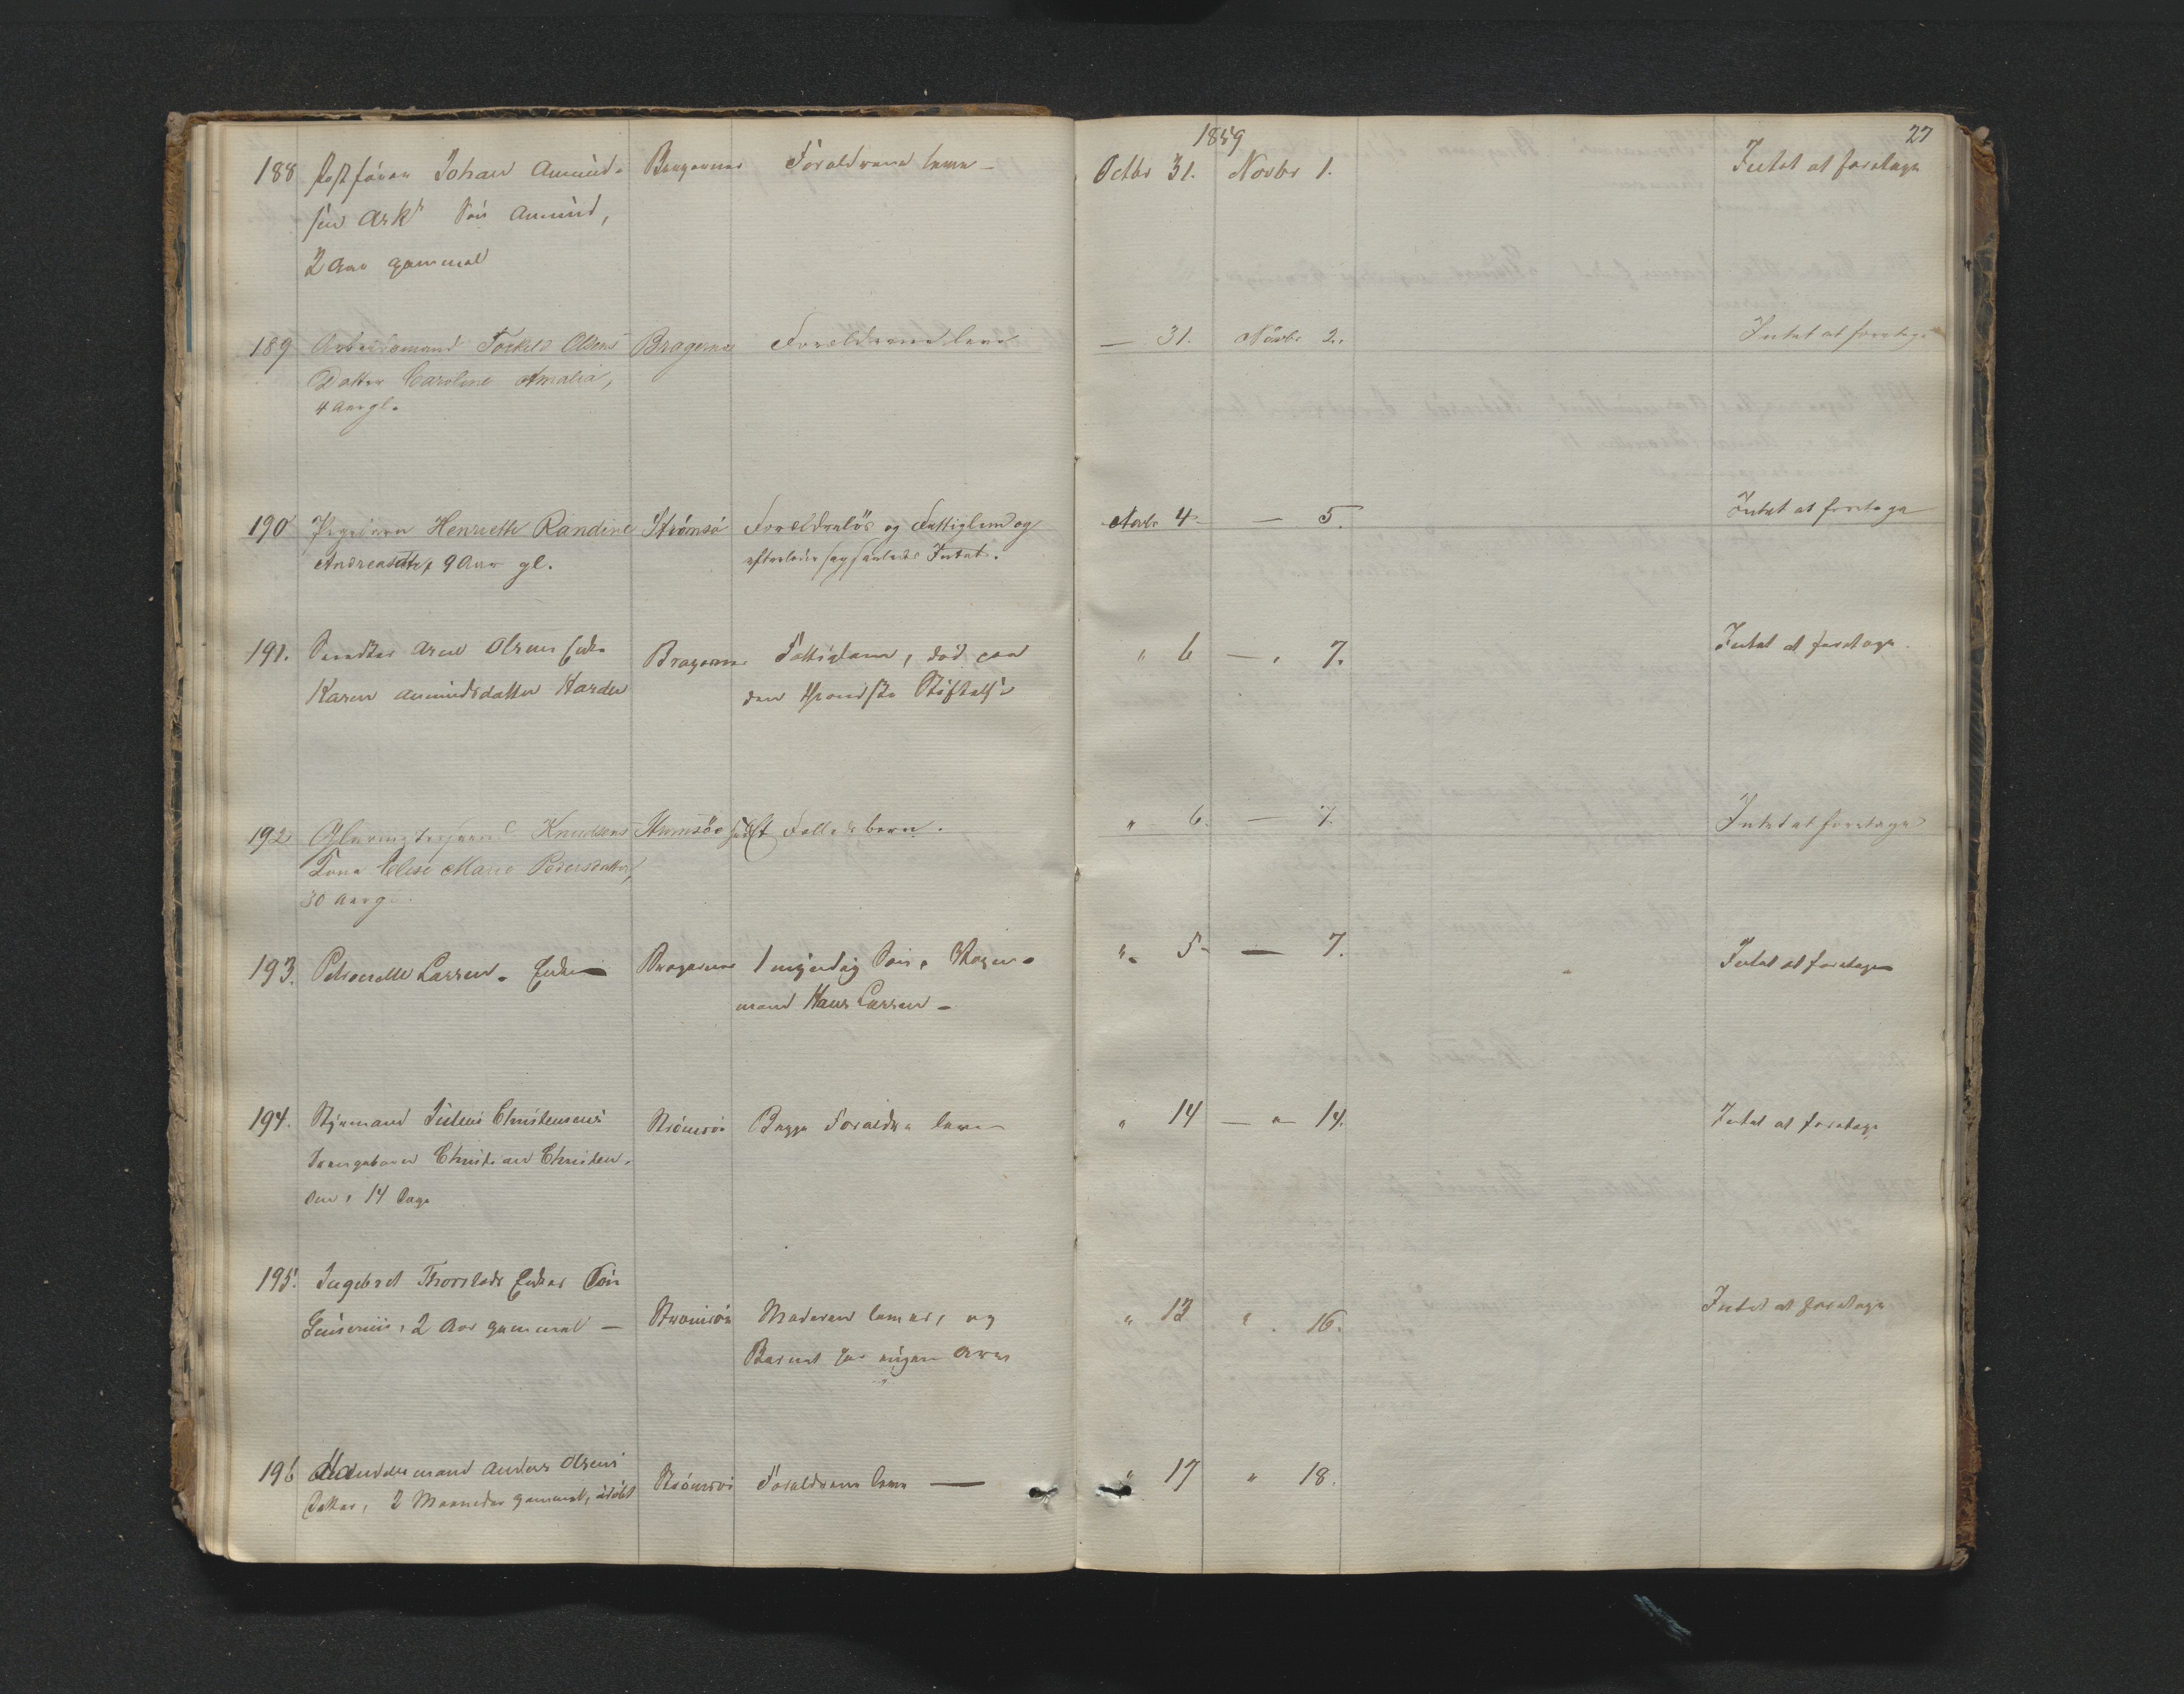 1859
27
188 Johan Amund-
sen Ask's Søn Amund,
2 Aar gammel
Bragernes
Forældrene leve –
Octbr 31. Novbr 1.
Intet at foretage
189 Arbeidsmand Torkild Olsens
Datter Caroline Amalia,
4 Aar gl.
Bragernes
Forældrene leve
— 31. Novbr 2.
Intet at foretage
190 Pigebarn Henriette Randine
Andreasdtr, 9 Aar gl.
Strømsø
Forældreløs og Fattiglem og
Intet.
Novbr 4. — 5.
Intet at foretage
191. Arne Olsens Enke
Karen Amundsdatter Harder
Bragernes
Fattiglem, død paa
den Stiftelse
" 6 — " 7.
Intet at foretage.
192 Knudsens
Kone Elise Marie Pedersdatter,
30 Aar gl.
Strømsø
Fælleds børn.
" 6. — 7.
Intet at foretage
193. Petronelle Larsen – Enke
Bragernes
1 myndig Søn,
mand Hans Larsen –
" 5 – — 7.
Intet at foretage
194. Styrmand Julius Christensens
Drengebarn Christian Christen-
sen, 14 Dage
Strømsø
Begge Forældre leve
" 14 — " — 14.
Intet at foretage
195. Ingebret Thorstads Enkes Søn
2 Aar gammel —
Strømsø
Moderen lever, og
Barnet har ingen Arv
" 13 " . 16.
Intet at foretage
196 mand Anders Olsens
Datter, 2 Maaneder gammel, udøbt
Strømsø
Forældrene leve —
" 17 " 18.